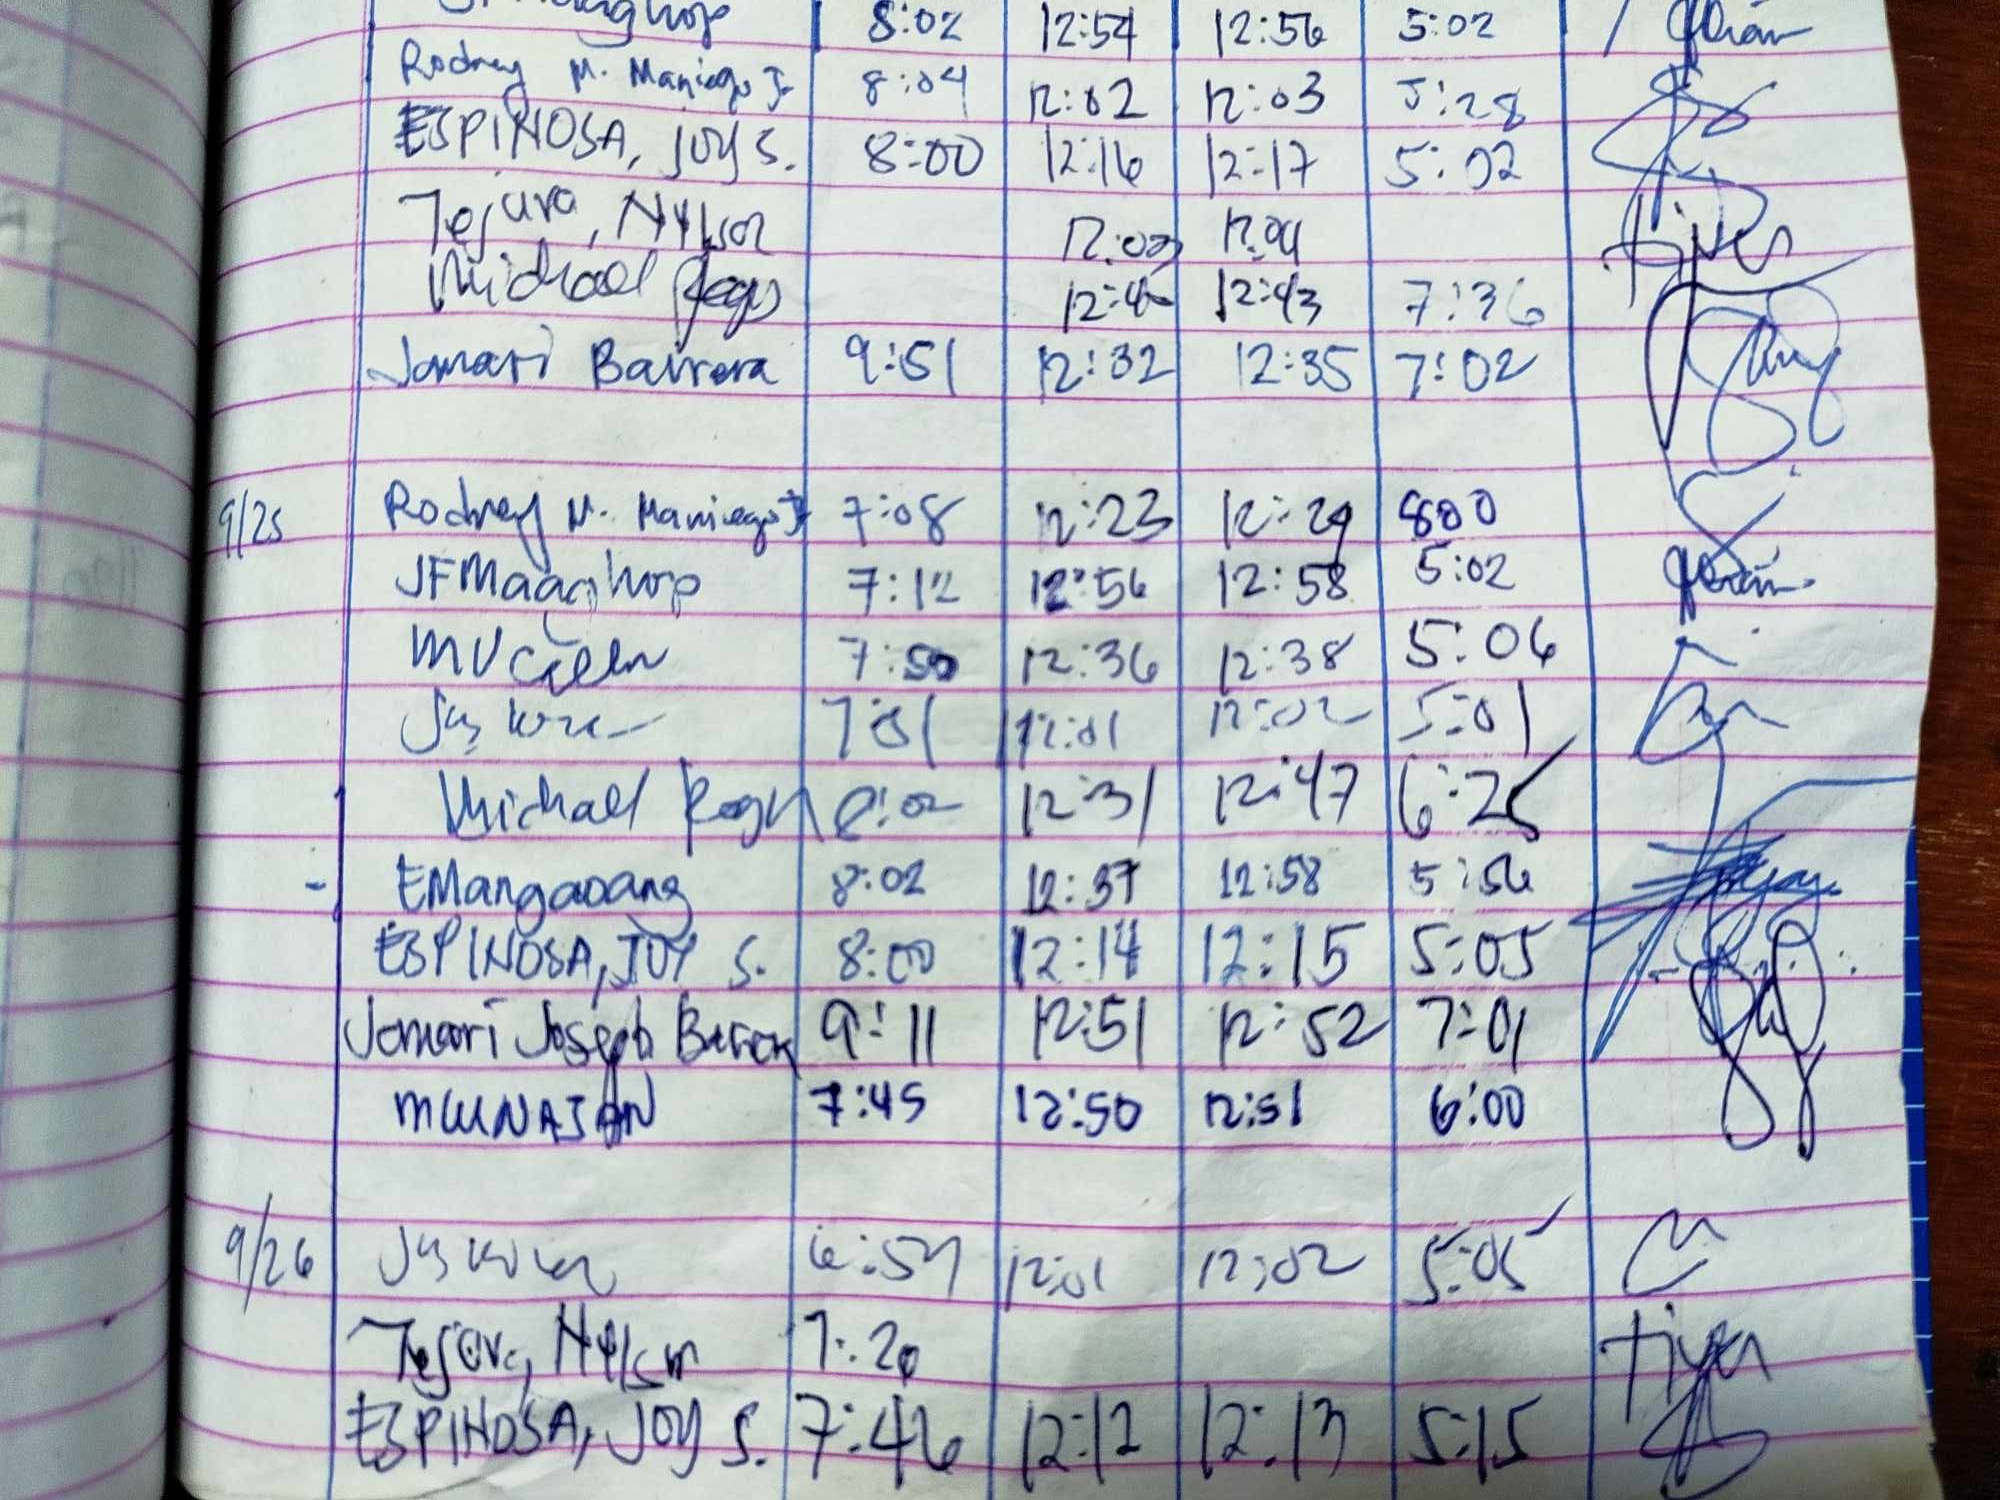 8:02 12:54 12:56 5:02
Rodney M. Maniego Jr 8:04 12:02 12:03 5:28
ESPINOSA, JOY S. 8:00 12:16 12:17 5:02
Tejura, Nylson 12:03 12:04
Michael 12:43 7:36
Jomari Barrera 9:51 12:32 12:35 7:02
9/25 Rodney M. Maniego Jr 7:08 12:23 12:29 8:00
JFMaaghop 7:12 12:56 12:58 5:02
MV 7:50 12:36 12:38 5:06
7:51 12:01 12:02 5:01
Michael 8:02 12:31 12:47 6:25
EMangaoang 8:02 12:37 12:58 5:56
ESPINOSA, JOY S. 8:00 12:14 12:15 5:05
Jomari Joseph Barrera 9:11 12:51 12:52 7:01
7:45 12:50 12:51 6:00
9/26 12:01 12:02 5:05
Tejura, Nylson 7:20
ESPINOSA, JOY S. 7:46 12:12 12:13 5:15